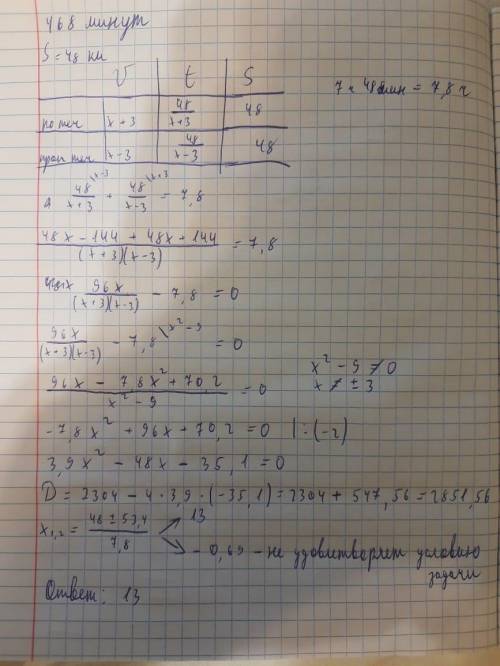 468 минут
S = 48 км
V t S
по теч x+3 48/(x+3) 48
прот теч x-3 48/(x-3) 48
7 ч 48 мин = 7,8 ч
48/(x+3) |x-3 + 48/(x-3) |x+3 = 7,8
(48x - 144 + 48x + 144)/((x+3)(x-3)) = 7,8
96x/((x+3)(x-3)) - 7,8 = 0
96x/((x+3)(x-3)) - 7,8 |x²-9 = 0
(96x - 7,8x² + 70,2)/(x² - 9) = 0
x² - 9 ≠ 0
x ≠ ± 3
-7,8x² + 96x + 70,2 = 0 | : (-2)
3,9x² - 48x - 35,1 = 0
D = 2304 - 4 · 3,9 · (-35,1) = 2304 + 547,56 = 2851,56
x₁,₂ = (48 ± 53,4)/7,8
13
-0,69 - не удовитворяет условию
задачи
Ответ: 13